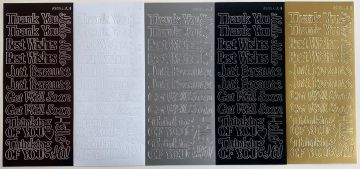 Thank You
Thank You
Best Wishes
Best Wishes
Just Because
Just Because
Get Well Soon
Get Well Soon
Thinking
OF YOU
Thinking
OF YOU
Thank You
Thank You
Best Wishes
Best Wishes
Just Because
Just Because
Get Well Soon
Get Well Soon
Thinking
OF YOU
Thinking
OF YOU
Thank You
Thank You
Best Wishes
Best Wishes
Just Because
Just Because
Get Well Soon
Get Well Soon
Thinking
OF YOU
Thinking
OF YOU
Thank You
Thank You
Best Wishes
Best Wishes
Just Because
Just Because
Get Well Soon
Get Well Soon
Thinking
OF YOU
Thinking
OF YOU
Thank You
Thank You
Best Wishes
Best Wishes
Just Because
Just Because
Get Well Soon
Get Well Soon
Thinking
OF YOU
Thinking
OF YOU